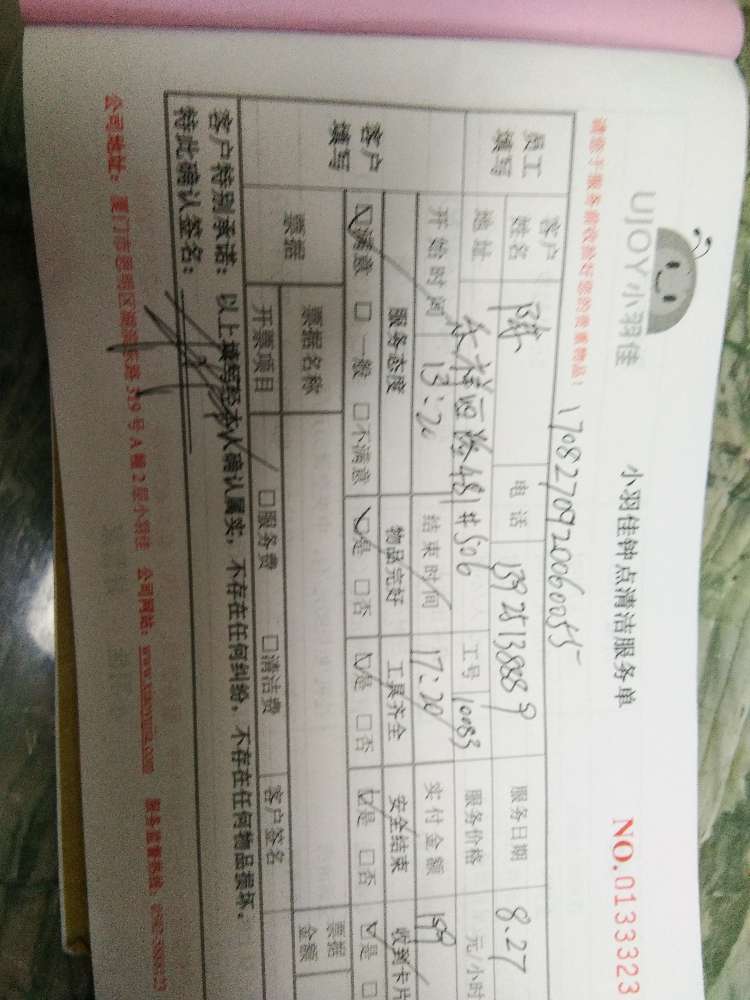 UJOY小羽佳
小羽佳钟点清洁服务单
NO.0133323
请您于服务前收拾好您的贵重物品!
1708270920060055
员工填写
客户姓名 陈 电话 13925138889 服务日期 8.27
地址 481#506 工号 10083 服务价格 元/小时
开始时间 13:20 结束时间 17:20 实付金额
客户填写
服务态度 物品完好 工具齐全 安全结束 收到卡片
☑满意 □一般 □不满意 ☑是 □否 ☑是 □否 ☑是 □否 ☑是
票据 票据名称 票据金额
开票项目 □服务费 □清洁费 客户签名
客户特别承诺：以上填写经本人确认属实，不存在任何纠纷，不存在任何物品损坏。
特此确认签名：
公司地址：厦门市思明区 319号A幢2层小羽佳 公司网站：www.xiaoyujia.com 服务监督热线：